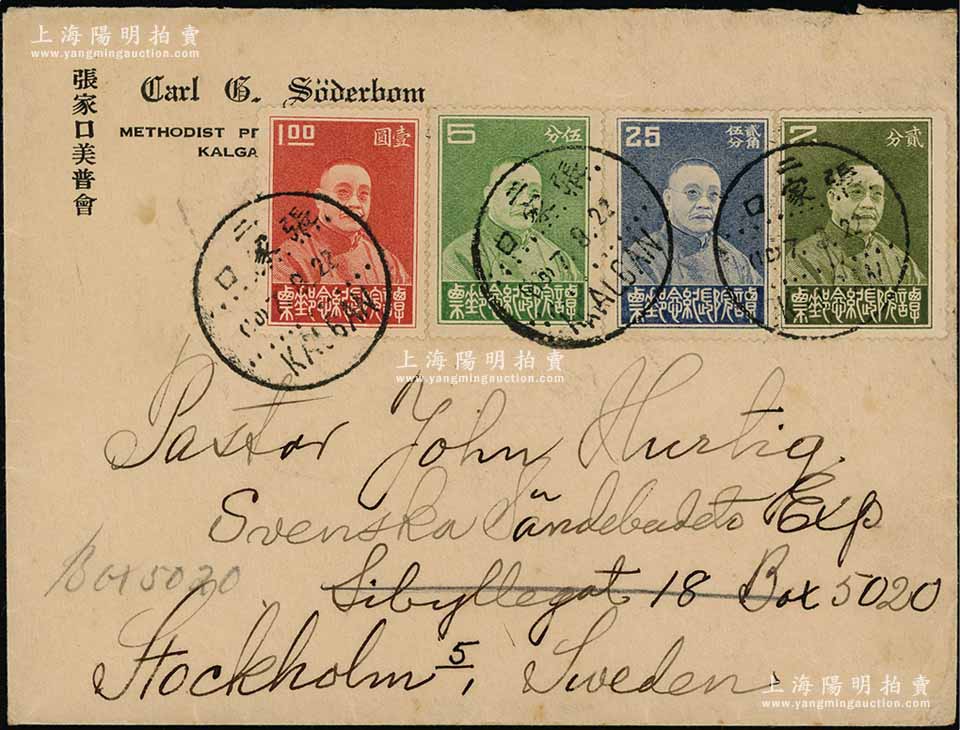 上海陽明拍賣
www.yangmingauction.com
張家口美普會
Carl G. Söderbom
METHODIST PR
KALGA
1.00 壹圓
5 伍分
25 貳角伍分
2 貳分
票郵念紀長院譚
票郵念紀長院譚
票郵念紀長院譚
票郵念紀長院譚
張家口
KALGAN
張家口
8.22
KALGAN
張家口
上海陽明拍賣
www.yangmingauction.com
Pastor John Hurtig
Svenska Sändebudets Exp
Box 5020
Sibyllegat 18 Box 5020
Stockholm 5, Sweden
上海陽明拍賣
www.yangmingauction.com